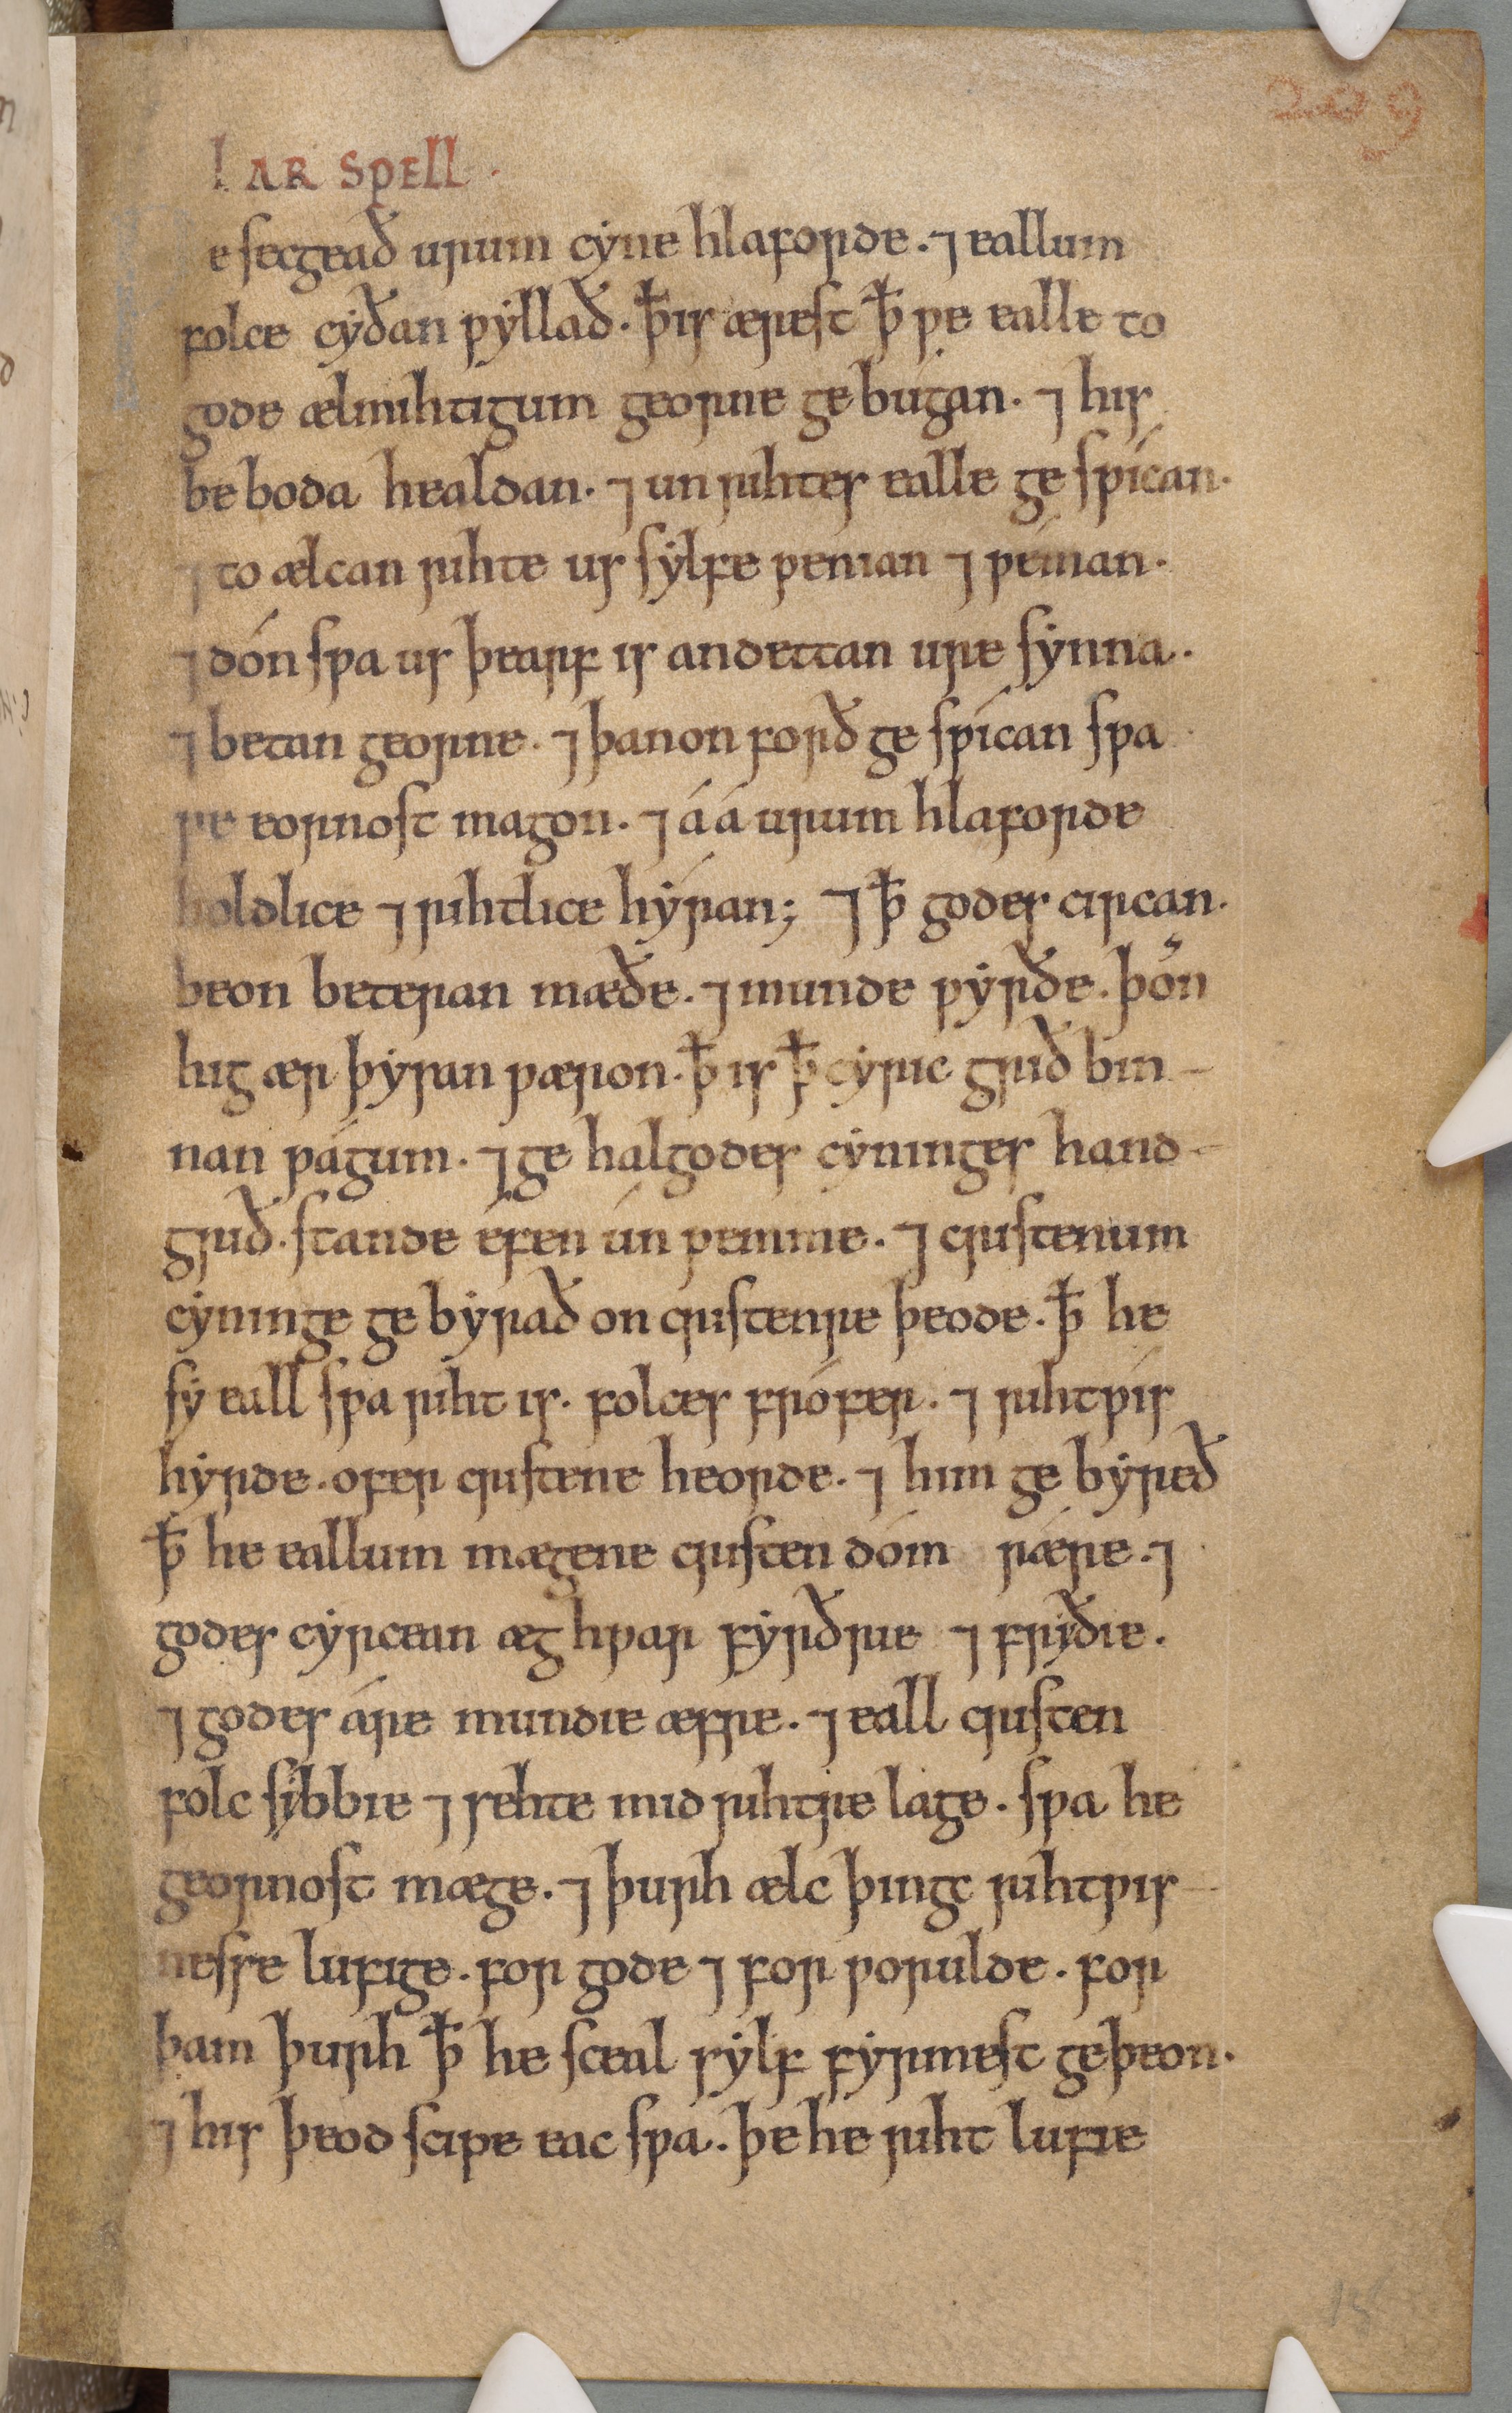 209
LAR SPELL .
e secgeað urum cẏne hlaforde. ⁊ eallum
folce cẏðan ƿẏllað. ꝥ is ærest ꝥ ƿe ealle to
gode ælmihtigum georne ge búgan. ⁊ his
be boda healdan. ⁊ un rihtes ealle ge sƿícan.
⁊ to ælcan rihte us sẏlfe ƿenian ⁊ ƿéman.
⁊ dón sƿa us þearf is andettan ure sẏnna.
⁊ betan georne. ⁊ þanon forð ge sƿícan sƿa
ƿe eornost magon. ⁊ á á urum hlaforde
holdlice ⁊ rihtlice hẏ́ran; ⁊ ꝥ godes circan.
beon beteran mæðe. ⁊ munde ƿẏrðe. þőn
hig ær þẏsan ƿæron. ꝥ is ꝥ cẏric grið bin-
nan ƿágum. ⁊ ge halgodes cẏninges hand-
grið. stande éfen ún ƿemme. ⁊ cristenum
cẏninge ge bẏrað on cristenre þeode. ꝥ he
sẏ eall sƿa riht is. folces frófer. ⁊ rihtƿís
hẏrde. ofer cristene heorde. ⁊ him ge bẏreð
ꝥ he eallum mægene cristen dóm rǽre. ⁊
godes cẏrcean æg hƿar fẏrðrie ⁊ friðie.
⁊ godes áre mundie æfre. ⁊ eall cristen
folc sẏbbie ⁊ sehte mid rihtre lage. sƿa he
geornost mæge. ⁊ þurh ælc þingc rihtƿis-
nesse lufige. for gode ⁊ for ƿorulde. for
þam þurh ꝥ he sceal sẏlf fẏrmest geþeon.
⁊ his þeod scipe eac sƿa. þe he riht lufie